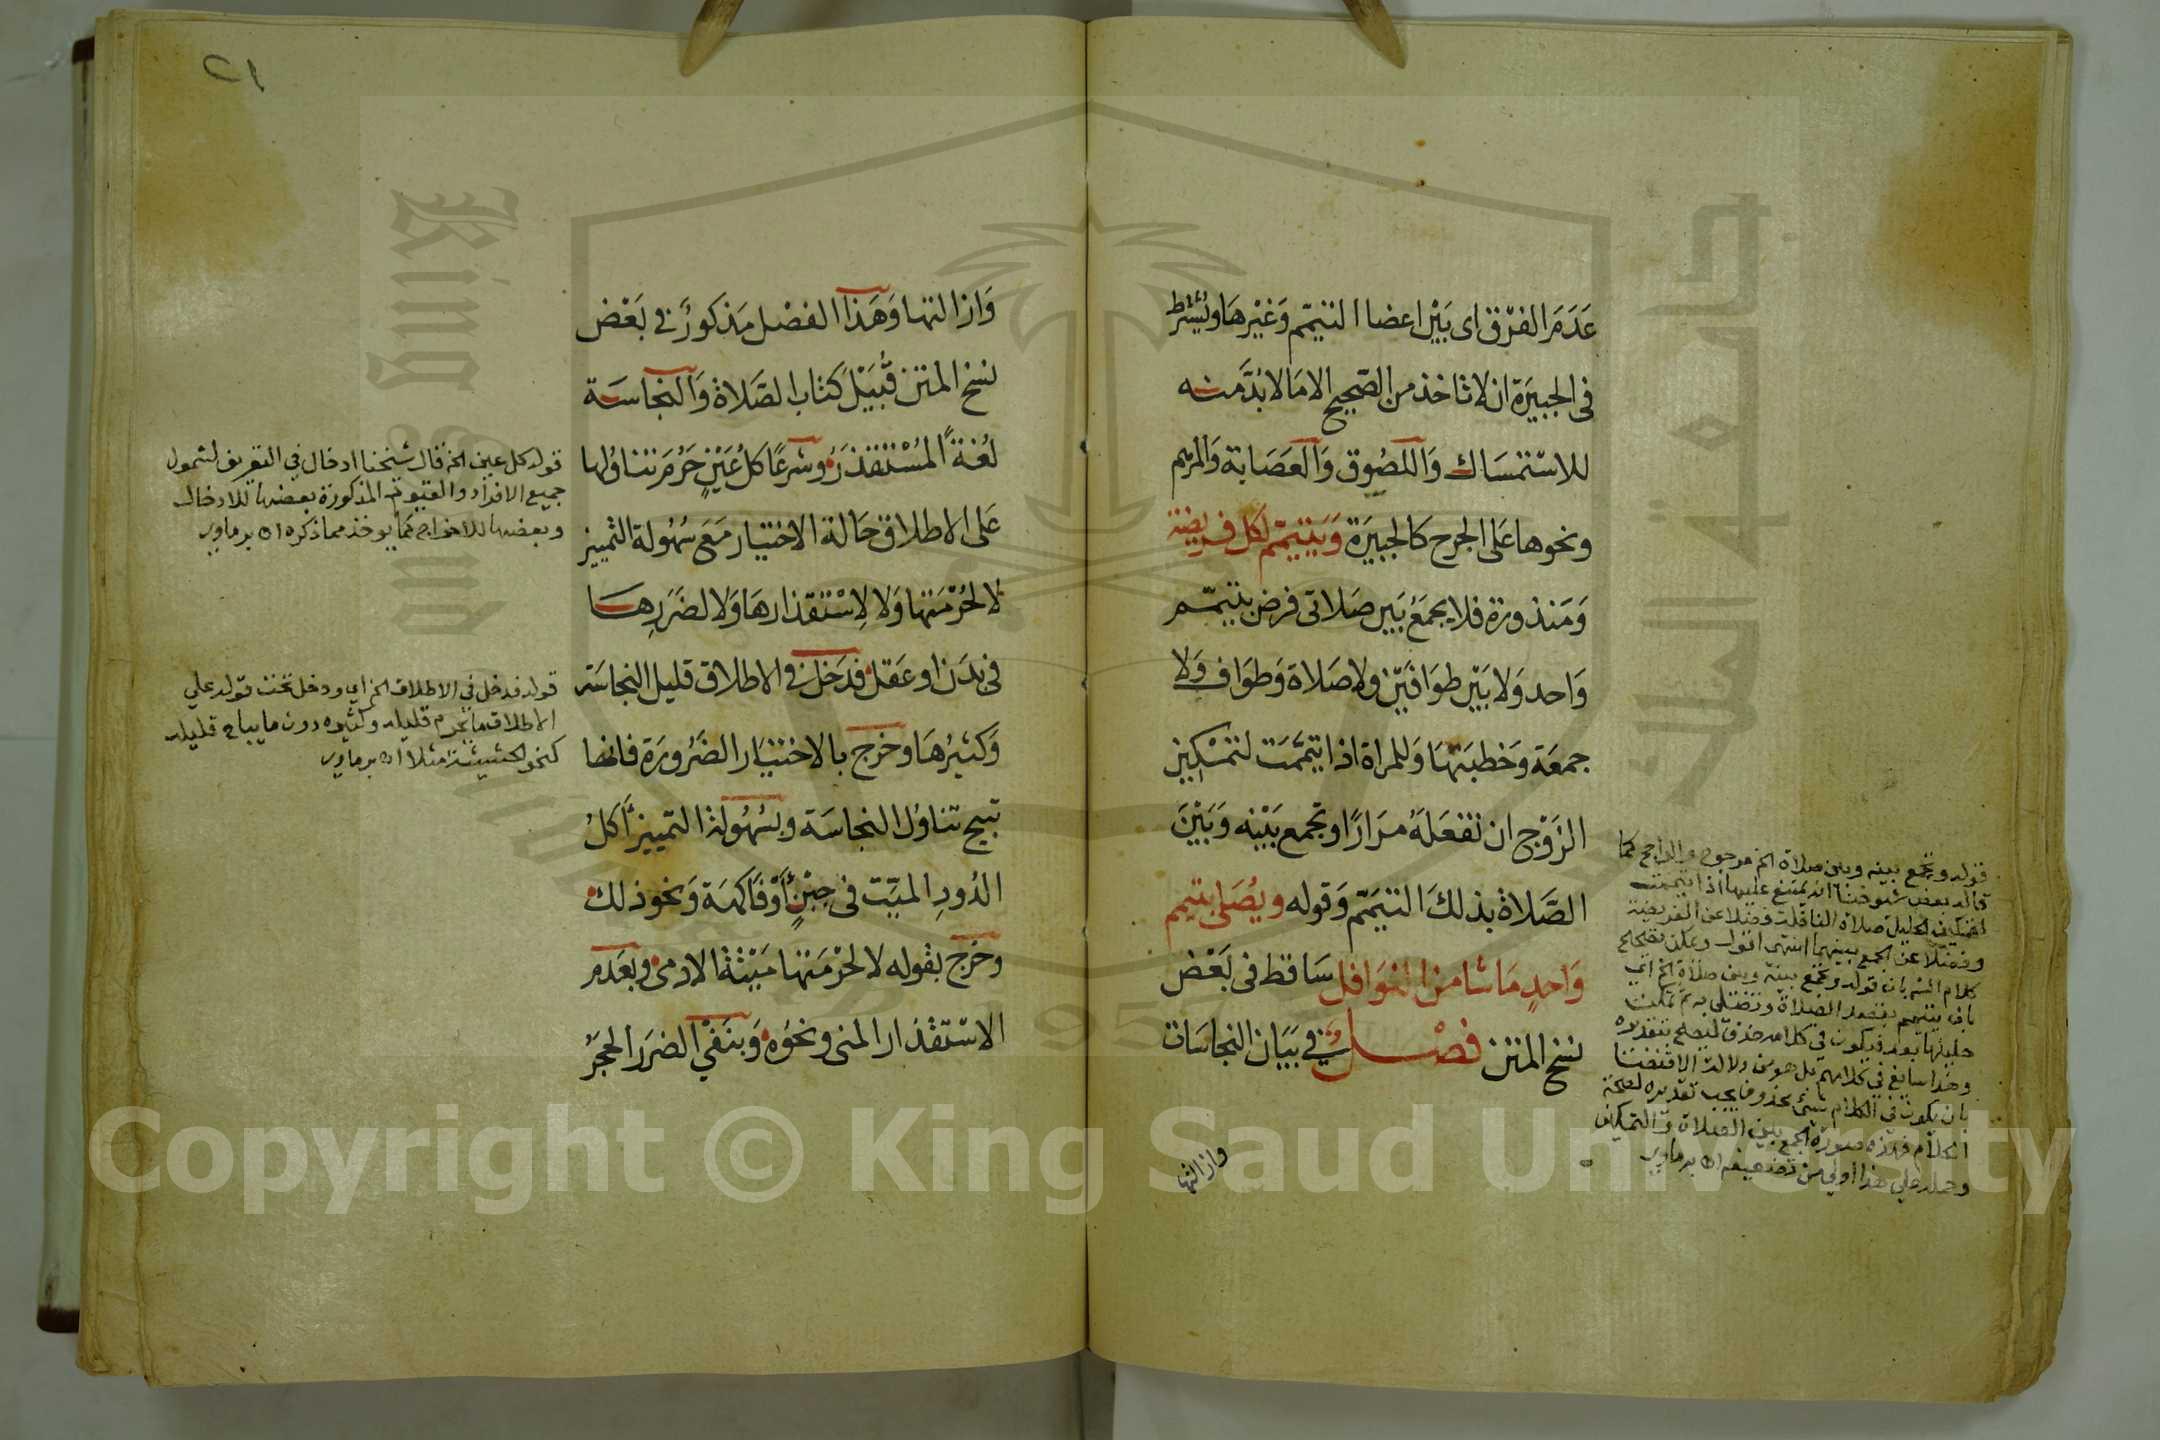 عَدَمَ الفرق اى بَيْن اعضا التيمّم وَغَيْرهَا ويُشترط
فى الجبيرَة ان لا تاخذ من الصّحيح الا مَا لا بُدَّ منه
للاسْتمسَاك وَاللصُوق وَالعَصَابة وَالمرهم
ونحوها عَلى الجرح كالجبيَرة وَيَتيمّم لكل فريضة
وَمَنذورة فلا يجمَعُ بَين صَلاتى فرض بتيمّم
وَاحد وَلا بَيْن طوَافَيْن ولا صَلاة وَطوَاف وَلا
جمعَة وَخطبَتهَا وَللمراة اذا تيمّمَت لتمْكِين
الزَوْج ان تفعَلهُ مرَارًا وتجمع بَيْنه وَبَيْنَ
الصَّلاة بذلكَ التيَمّم وَقوله ويُصَلى بتيمم
وَاحدٍ مَا شا من النوَافل سَاقط فى بَعْض
نسخ المتن فصْل فى بَيَان النجاسَات
وازالتها
قوله وتجمع بينه وبين صلاة الخ مرجوح والراجح كما
قاله بعض شيوخنا انه يمتنع عليها اذا تيممت
لتمكين الحليل صلاة النافلة فضلا عن الفريضة
وفضلا عن الجمع بينهما انتهى اقول ويمكن تصحيح
كلام الش بان قوله وتجمع بينه وبين صلاة الخ اي
بان تتيمم بقصد الصلاة وتصلي به ثم تمكن
حليلها بعد فيكون في كلامه حذف ليصح بتقديره
وهذا سايغ في كلامهم بل هو من دلالة الاقتضا
بان يكون في الكلام شئ محذوف يجب تقديره لصحة
الكلام فهذه صورة الجمع بين الصلاة والتمكين
وحمله على هذا اولى من تضعيفه اه برماوي
٢١
وَازالتها وَهَذا الفصْل مَذكورٌ فى بَعْض
نسخ المتن قُبيْل كتاب الصَّلاة وَالنجَاسَة
لُغةً المُسْتقذَرُ وشرعًا كلُ عَيْنٍ حَرُمَ تناوُلها
عَلى الاطلاق حَالة الاختيار مَعَ سُهُولة التمييز
لا لحُرْمَتها وَلا لاسْتقذارهَا وَلا لضَرَرِهَا
فى بَدَن او عَقل فدَخل فى الاطلاق قليل النجاسَة
وَكثيرُهَا وخرَج بالاختيَار الضَرُورَة فانها
تبيح تناوُل النجاسَة وبسُهُولة التمييز أكلُ
الدُودِ الميّت فى جبْنٍ أوْ فَاكهَة وَنحوذلك
وخرَج بقوله لا لحرْمَتها مَيْتةُ الادمى وبعَدم
الاسْتقذار المنى ونحوُه وَبنفْي الضرَر الحجَرُ
قوله كل عين الخ قال شيخنا ادخال في التعريف لشمول
جميع الافراد والقيود المذكورة بعضها للادخال
وبعضها للاخراج كما يوخذ مما ذكره اه برماوي
قوله فدخل في الاطلاق الخ اي ودخل تحت قوله علي
الاطلاق ما يحرم قليله وكثيره دون ما يباح قليله
كنحو الحشيشة مثلا اه برماوي
King Saud
1957
Copyright © King Saud University